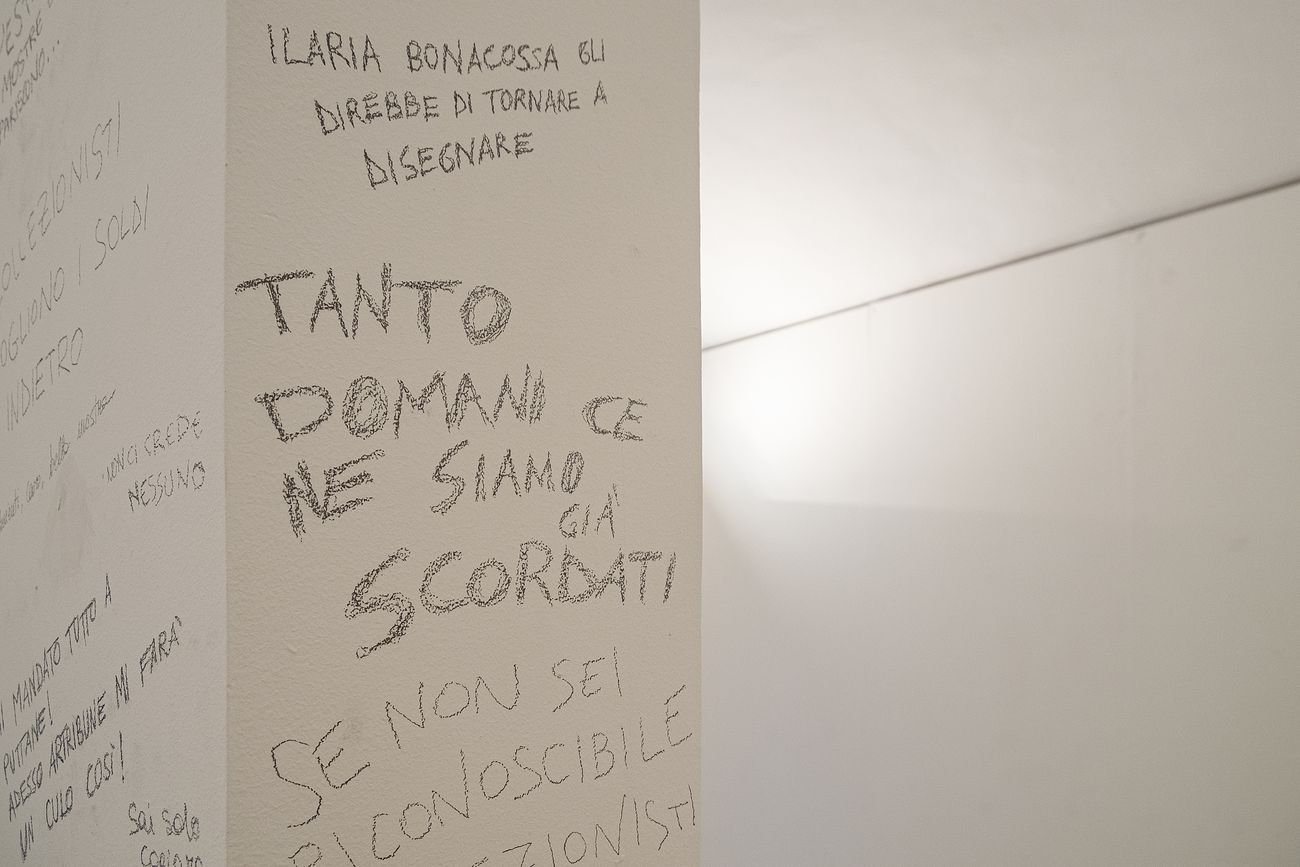 MOSTRE
COLLEZIONISTI
VOGLIONO I SOLDI
INDIETRO
NON CI CREDE
NESSUNO
MANDATO TUTTO A
PUTTANE!
ADESSO ARTRIBUNE MI FARÀ
UN CULO COSÌ!
Sai solo
ILARIA BONACOSSA GLI
DIREBBE DI TORNARE A
DISEGNARE
TANTO
DOMANI CE
NE SIAMO
GIA'
SCORDATI
SE NON SEI
RICONOSCIBILE